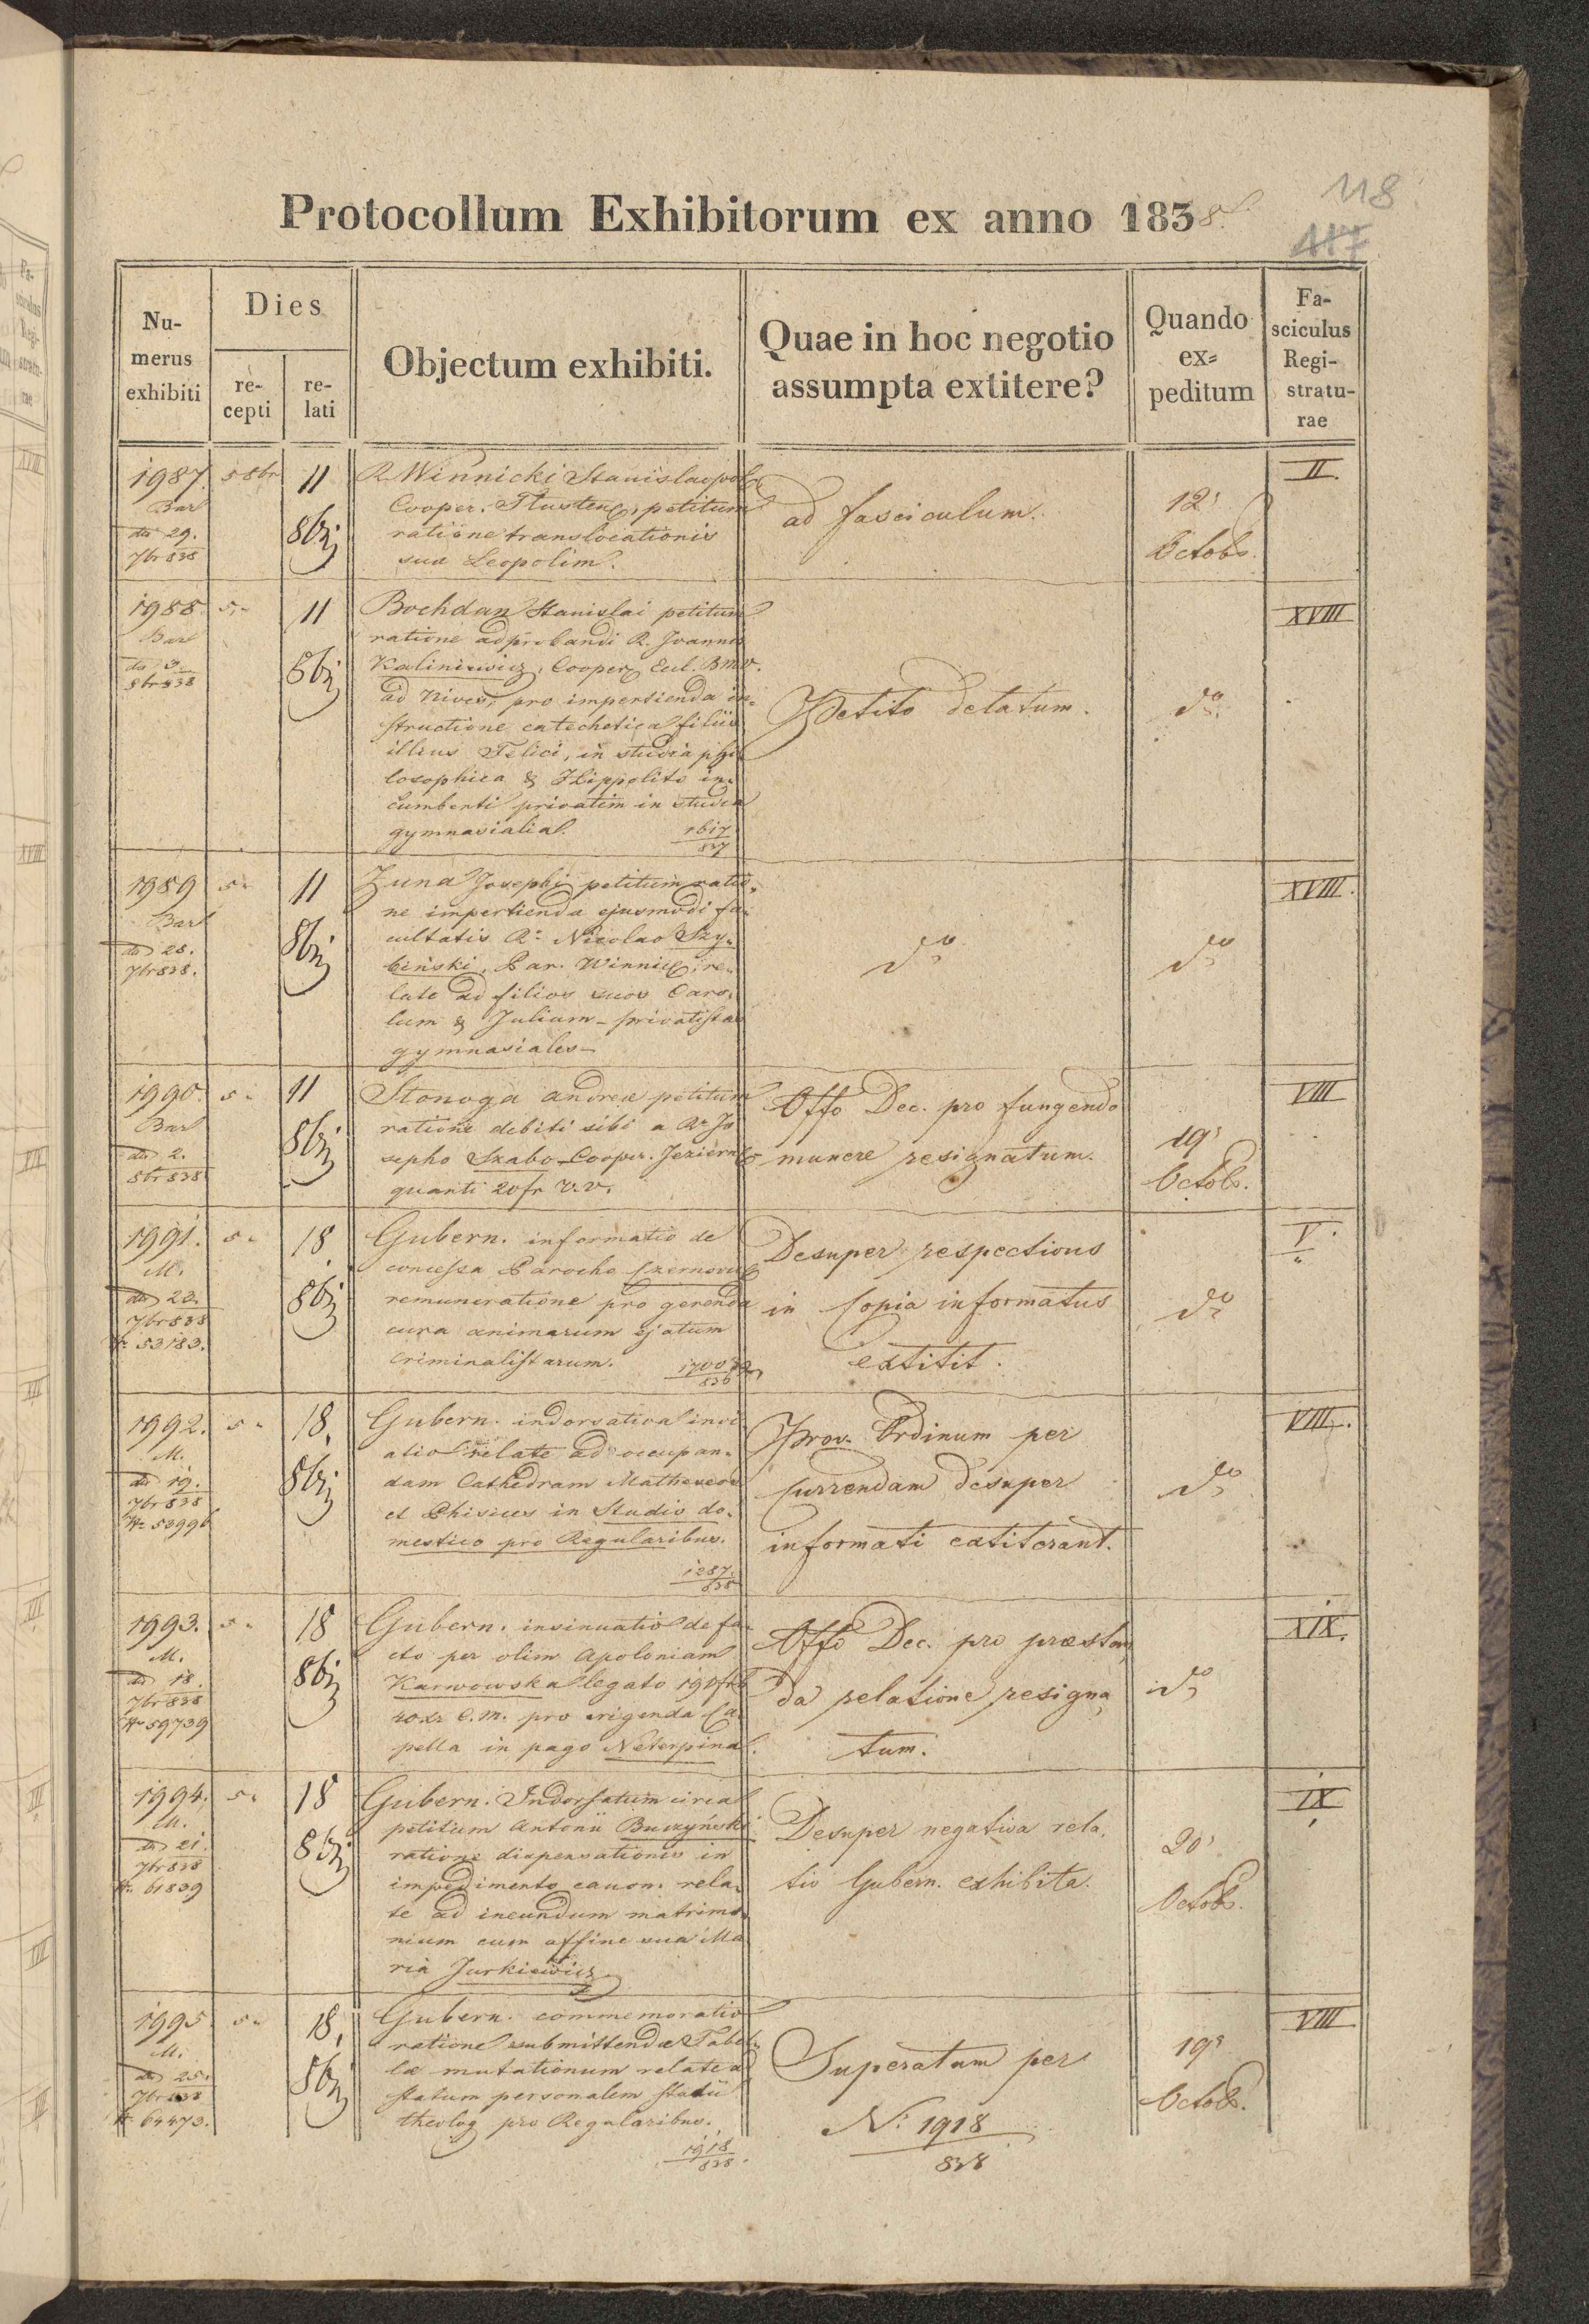 118
117
Protocollum Exhibitorum ex anno 1838.
Numerus exhibiti
Dies
recepti
relati
Objectum exhibiti.
Quae in hoc negotio
assumpta extitere?
Quando
ex=
peditum
Fa-
sciculus
Regi-
stratu-
rae
1987. 5 8br 11 8bris
Bar
dto 29.
7br 838
R. Winnicki Stanislaopol.
Cooper. petitum
ratione translocationis
sua Leopolim.
ad fasciculum.
12
Octob.
II.
1988 5. 11 8bris
Bar
dto 3.
8br 838
Bochdan Stanislai petitum
ratione adprobandi R. Joannis
Kaliniewicz, Cooper. Eccl. B.M.V.
ad Nives, pro impertienda in-
structione catechetica filiis
illius Felici, in studia phi
losophica & Hippolito in-
cumbenti privatim in studia
gymnasialia.
1617
837
Petito delatum.
do
XVIII
1989 5. 11 8bris
Bar
dto 28.
7br 838.
Zuna Josephi petitum ratio-
ne impertienda ejusmodi fa-
cultatis R. Nicolao Szy-
biński, Par. Winnic. re-
late ad filios suos Caro-
lum & Julium - privatistas
gymnasiales -
do
do
XVIII.
1990. 5. 11 8bris
Bar
dto 2.
8br 838
Stonoga Andreae petitum
ratione debiti sibi a R. Jo
sepho Szabo Cooper. Jeziern.
quanti 20 fr V.V.
Offo Dec. pro fungendo
munere resignatum.
19
Octob.
VIII
1991. 5. 18 8bris
M.
dto 22.
7br 838
No 53183.
Gubern. informatio de
concessa Parocho
remuneratione pro gerenda
cura animarum ejatum
criminalistarum.
1700
836
Desuper respectivus
in Copia informatus
extitit.
do
V.
1992. 5. 18. 8bris
M.
dto 19.
7br 838
No 53996
Gubern. indorsativa
relate ad occupan-
dam Cathedram Matheseos
et Phisices in Studio do-
mestico pro Regularibus.
1287.
838
Prov. Ordinum per
Currendam desuper
informati extiterant.
do
VIII.
1993. 5. 18 8bris
M.
dto 18.
7br 838
No 59739
Gubern. insinuatio de fa-
cto per olim Apoloniam
Karwowska legato 190
40 xr C.M. pro erigenda Ca-
pella in pago Neterpina.
Offo Dec. pro præstan,
da relatione resigna,
tum.
do
XIX.
1994. 5. 18 8bris
M.
dto 21.
7br 838
No 61839
Gubern. Indorsatum circa
petitum Antonii Buczyński
ratione dispensationis in
impedimento canon. rela-
te ad ineundum matrimo-
nium cum affine sua Ma
ria Jurkiewicz
Desuper negativa rela,
tio Gubern. exhibita.
20
Octob.
IX
1995 5. 18. 8bris
M.
dto 25.
7br 838
No 64473.
Gubern. commemoratio
ratione submittenda Tabel-
læ mutationum relate ad
statum personalem studii
theolog pro Regularibus.
1918
838.
Superatum per
N: 1918
838
19
Octob.
VIII